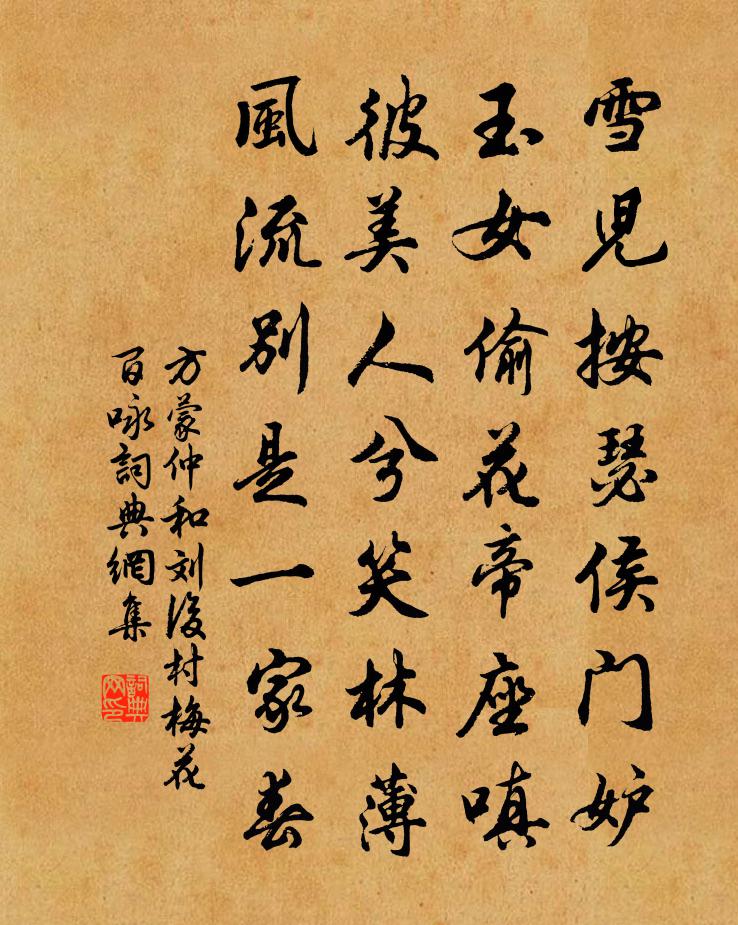 雪児按瑟侯门妒
玉女偷花帝座嗔
彼美人兮笑林薄
風流别是一家春
方蒙仲和刘後村梅花
百咏詞典網集
詞典
网印